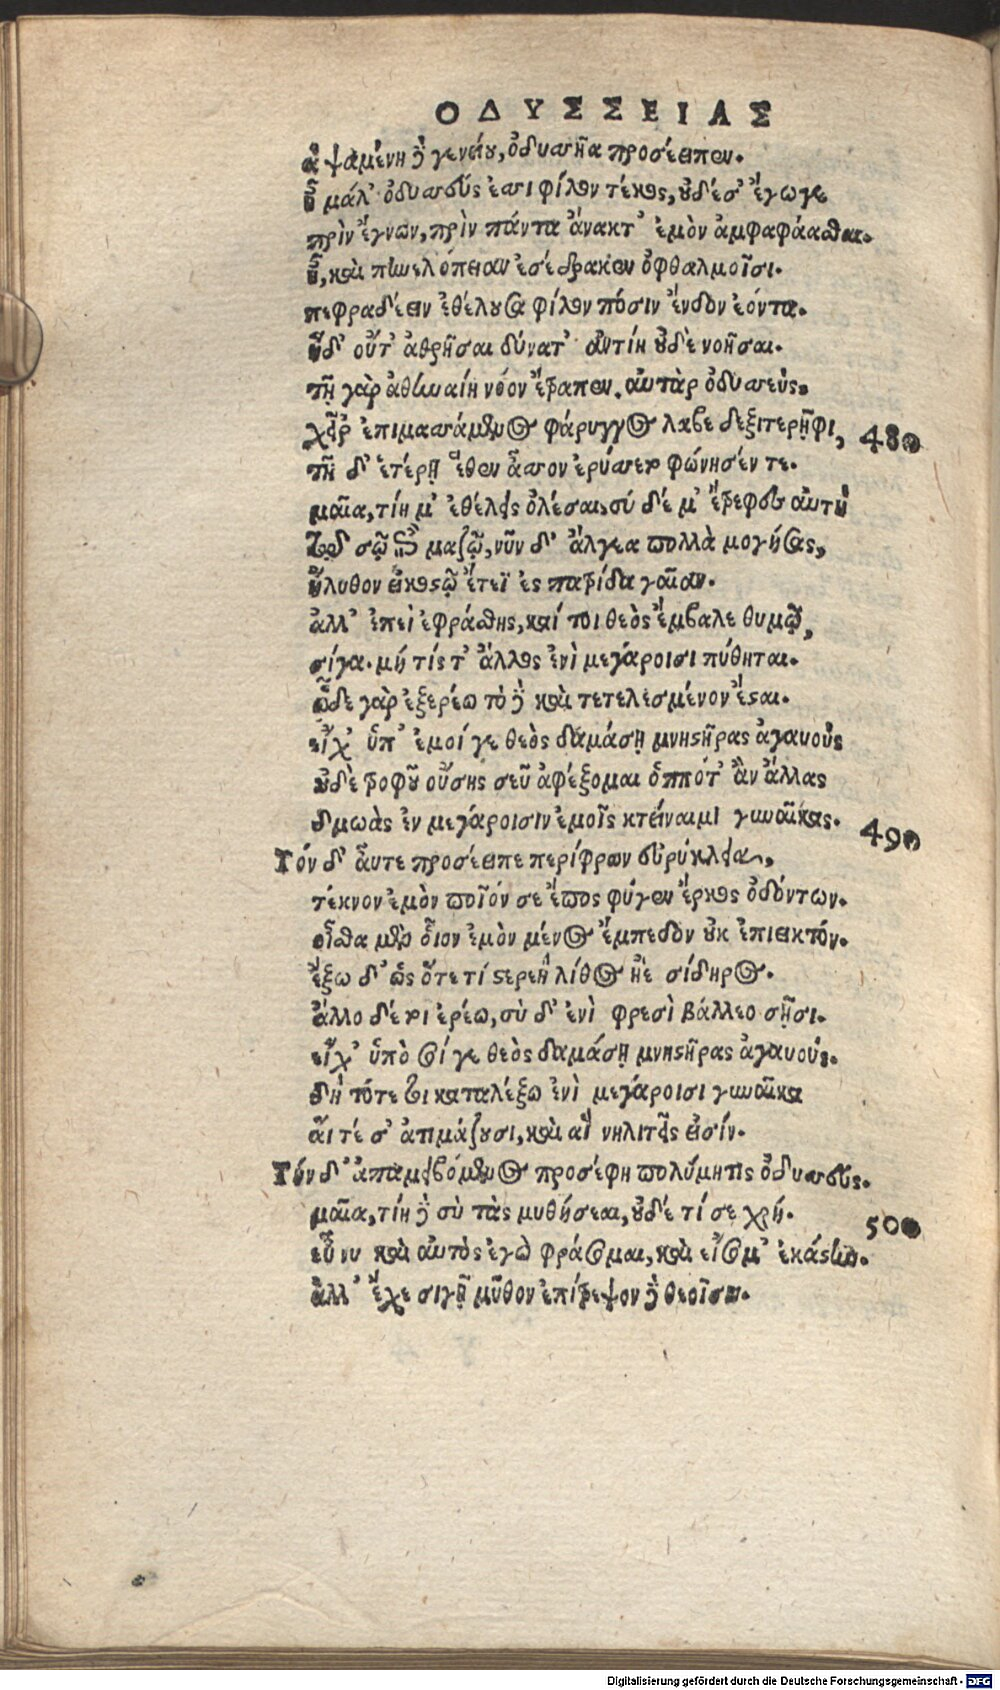 ΟΔΥΣΣΕΙΑΣ
ἁψαμένη δὲ γενείου, ὀδυσσῆα προσέειπεν.
ἦ μάλ' ὀδυσσεύς ἐσσι φίλον τέκος, οὐδέ σ' ἔγωγε
πρὶν ἔγνων, πρὶν πάντα ἄνακτ' ἐμὸν ἀμφαφάασθαι.
ἦ, καὶ πηνελόπειαν ἐσέδρακεν ὀφθαλμοῖσι.
πεφραδέειν ἐθέλουσα φίλον πόσιν ἔνδον ἐόντα.
ἡ δ' οὔτ' ἀθρῆσαι δύνατ' ἀντίη οὐδὲ νοῆσαι.
τῇ γὰρ ἀθηναίη νόον ἔτραπεν. αὐτὰρ ὀδυσσεὺς,
χεῖρ' ἐπιμασσάμενος φάρυγγος λάβε δεξιτερῇφι, 480
τῇ δ' ἑτέρῃ ἕθεν ἆσσον ἐρύσσετο φώνησέν τε.
μαῖα, τίη μ' ἐθέλεις ὀλέσαι, σύ δέ μ' ἔτρεφες αὐτὴ
τῷ σῷ ἐπὶ μαζῷ, νῦν δ' ἄλγεα πολλὰ μογήσας,
ἤλυθον εἰκοστῷ ἔτεϊ ἐς πατρίδα γαῖαν.
ἀλλ' ἐπεὶ ἐφράσθης, καί τοι θεὸς ἔμβαλε θυμῷ,
σίγα. μή τίς τ' ἄλλος ἐνὶ μεγάροισι πύθηται.
ὧδε γὰρ ἐξερέω τὸ δὲ καὶ τετελεσμένον ἔσται.
εἴ χ' ὑπ' ἐμοί γε θεὸς δαμάσῃ μνηστῆρας ἀγαυοὺς
οὐδὲ τροφοῦ οὔσης σεῦ ἀφέξομαι ὁππότ' ἂν ἄλλας
δμωὰς ἐν μεγάροισιν ἐμοῖς κτείναιμι γυναῖκας. 490
Τόν δ' αὖτε προσέειπε περίφρων εὐρύκλεια,
τέκνον ἐμὸν ποῖόν σε ἔπος φύγεν ἕρκος ὀδόντων.
οἶσθα μὲν οἷον ἐμὸν μένος ἔμπεδον οὐκ ἐπιεικτόν.
ἕξω δ' ὡς ὅτε τί στερεὴ λίθος ἠὲ σίδηρος.
ἄλλο δέ τοι ἐρέω, σὺ δ' ἐνὶ φρεσὶ βάλλεο σῇσι.
εἴ χ' ὑπὸ σοί γε θεὸς δαμάσῃ μνηστῆρας ἀγαυούς.
δὴ τότε τοι καταλέξω ἐνὶ μεγάροισι γυναῖκα
αἵ τέ σ' ἀτιμάζουσι, καὶ αἳ νηλιτεῖς εἰσίν.
Τόν δ' ἀπαμειβόμενος προσέφη πολύμητις ὀδυσσεύς.
μαῖα, τίη δὲ σὺ τὰς μυθήσεαι, οὐδέ τί σε χρή. 500
εὖ νυ καὶ αὐτὸς ἐγὼ φράσομαι, καὶ εἴσομ' ἑκάστην.
ἀλλ' ἔχε σιγῇ μῦθον ἐπίτρεψον δὲ θεοῖσιν.
Digitalisierung gefördert durch die Deutsche Forschungsgemeinschaft - DFG